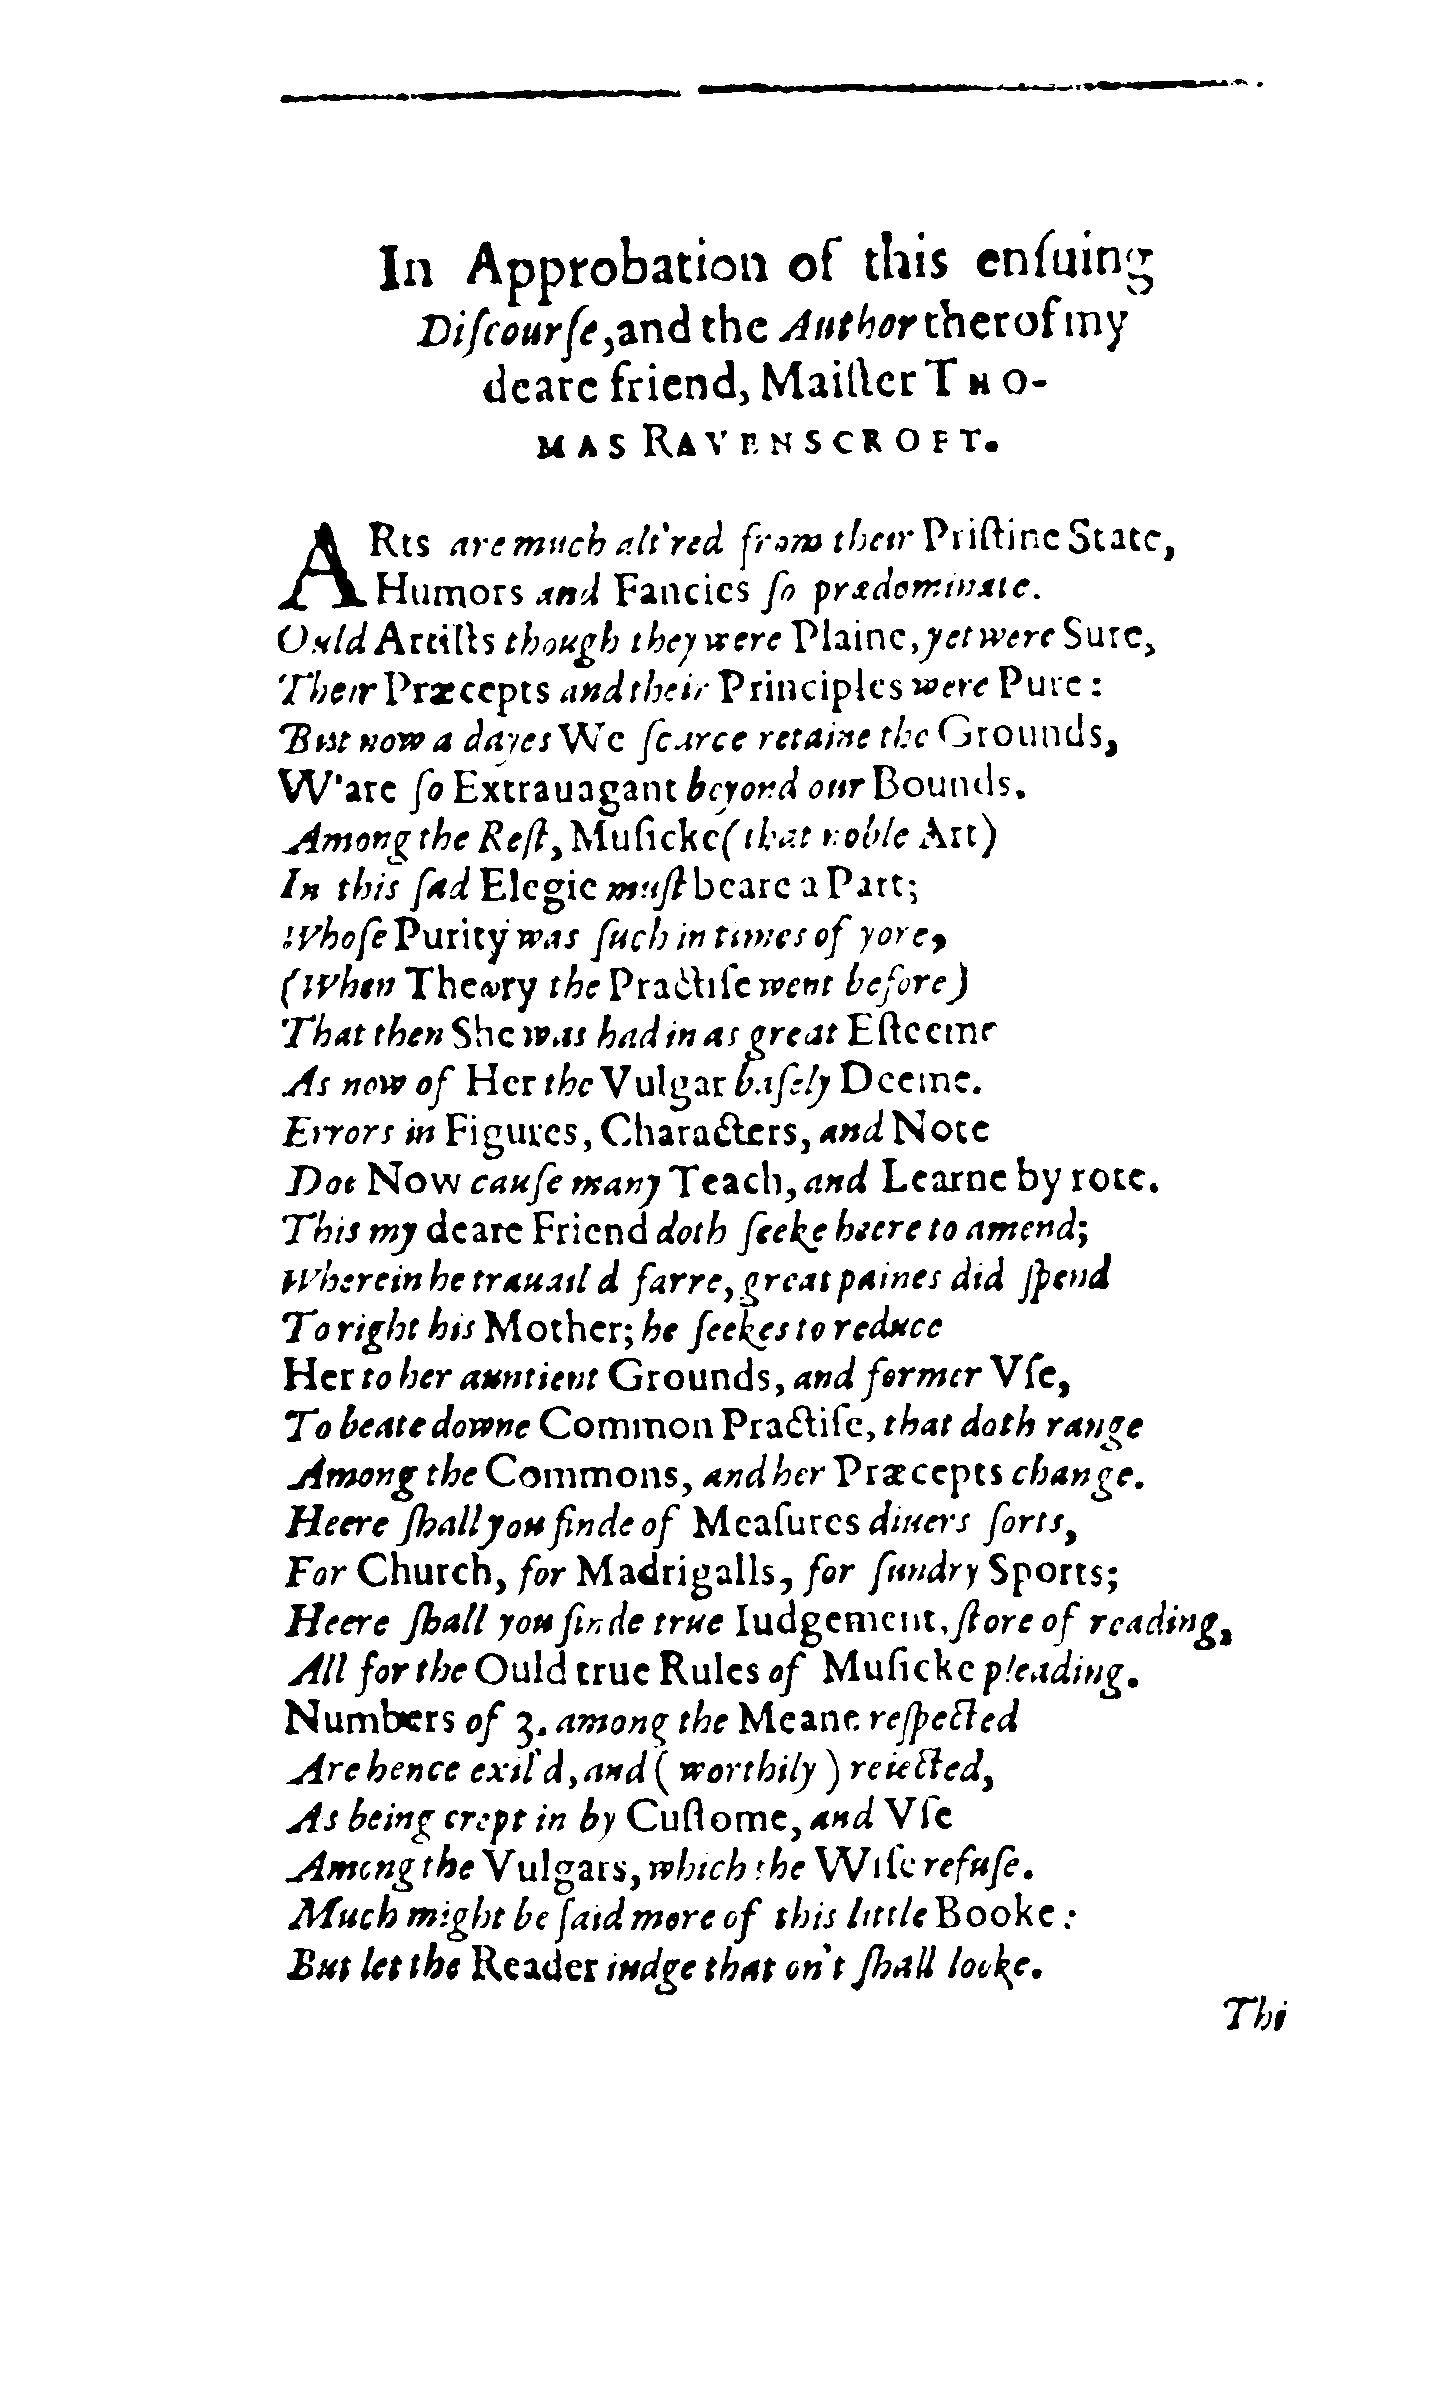 In Approbation of this enſuing
Diſcourſe, and the Author therof my
deare friend, Maiſter THO-
MAS RAVENSCROFT.
ARts are much alt'red from their Priſtine State,
Humors and Fancies ſo prædominate.
Ould Artiſts though they were Plaine, yet were Sure,
Their Præcepts and their Principles were Pure:
But now a dayes We ſcarce retaine the Grounds,
W'are ſo Extrauagant beyond our Bounds.
Among the Reſt, Muſicke (that noble Art)
In this ſad Elegie muſt beare a Part;
Whoſe Purity was ſuch in times of yore,
(When Theory the Practiſe went before)
That then She was had in as great Eſteeme
As now of Her the Vulgar baſely Deeme.
Errors in Figures, Characters, and Note
Doe Now cauſe many Teach, and Learne by rote.
This my deare Friend doth ſeeke heere to amend;
Wherein he trauail'd farre, great paines did ſpend
To right his Mother; he ſeekes to reduce
Her to her auntient Grounds, and former Vſe,
To beate downe Common Practiſe, that doth range
Among the Commons, and her Præcepts change.
Heere ſhall you finde of Meaſures diuers ſorts,
For Church, for Madrigalls, for ſundry Sports;
Heere ſhall you finde true Iudgement, ſtore of reading,
All for the Ould true Rules of Muſicke pleading.
Numbers of 3. among the Meane reſpected
Are hence exil'd, and (worthily) reiected,
As being crept in by Cuſtome, and Vſe
Among the Vulgars, which the Wiſe refuſe.
Much might be ſaid more of this little Booke:
But let the Reader iudge that on't ſhall looke.
Thi